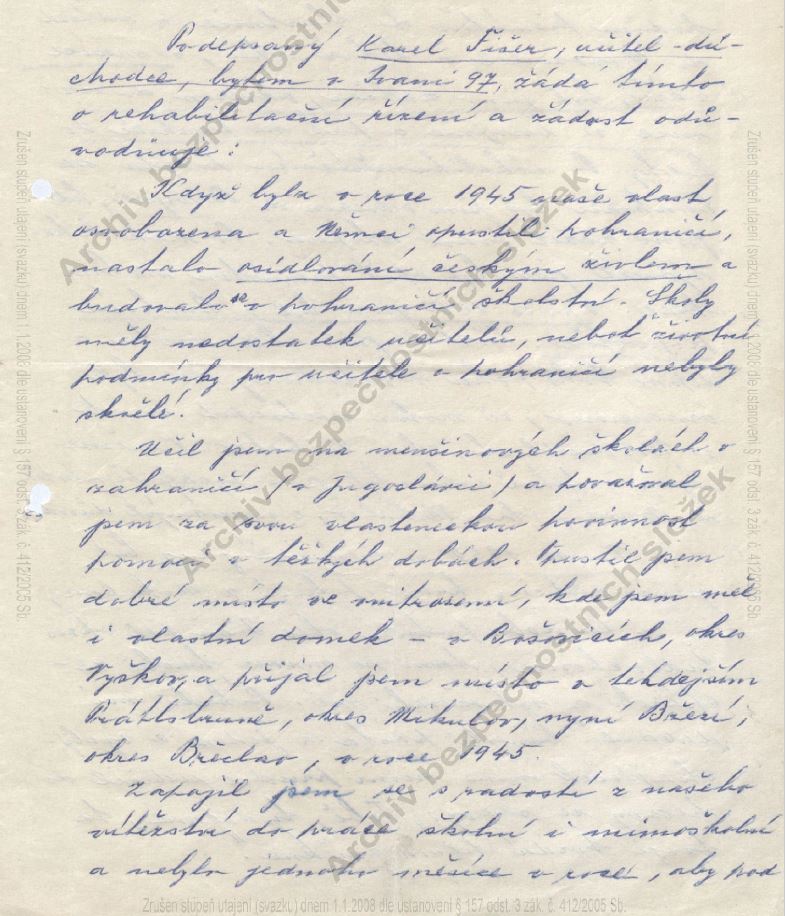 Podepsaný Karel Fišer, učitel-dů-
chodce, bytem v Ivani 97, žádá tímto
o rehabilitační řízení a žádost odů-
vodňuje:
Když byla v roce 1945 naše vlast
osvobozena a Němci opustili pohraničí,
nastalo osídlování českým živlem a
budovalo se v pohraničí školství. Školy
měly nedostatek učitelů, neboť životní
podmínky pro učitele v pohraničí nebyly
skvělé.
Učil jsem na menšinových školách v
zahraničí /v Jugoslávii/ a považoval
jsem za svou vlasteneckou povinnost
pomoci v těžkých dobách. Opustil jsem
dobré místo ve vnitrozemí, kde jsem měl
i vlastní domek - v Bošovicích, okres
Vyškov, a přijal jsem místo v tehdejším
Prátlsbruně, okres Mikulov, nyní Březí,
okres Břeclav, v roce 1945.
Zapojil jsem se s radostí z našeho
vítězství do práce školní i mimoškolní
a nebylo jednoho měsíce v roce, aby pod
Archiv bezpečnostních složek
Archiv bezpečnostních složek
Archiv bezpečnostních složek
Zrušen stupeň utajení (svazku) dnem 1.1.2008 dle ustanovení § 157 odst. 3 zák. č. 412/2005 Sb.
Zrušen stupeň utajení (svazku) dnem 1.1.2008 dle ustanovení § 157 odst. 3 zák. č. 412/2005 Sb.
Zrušen stupeň utajení (svazku) dnem 1.1.2008 dle ustanovení § 157 odst. 3 zák. č. 412/2005 Sb.